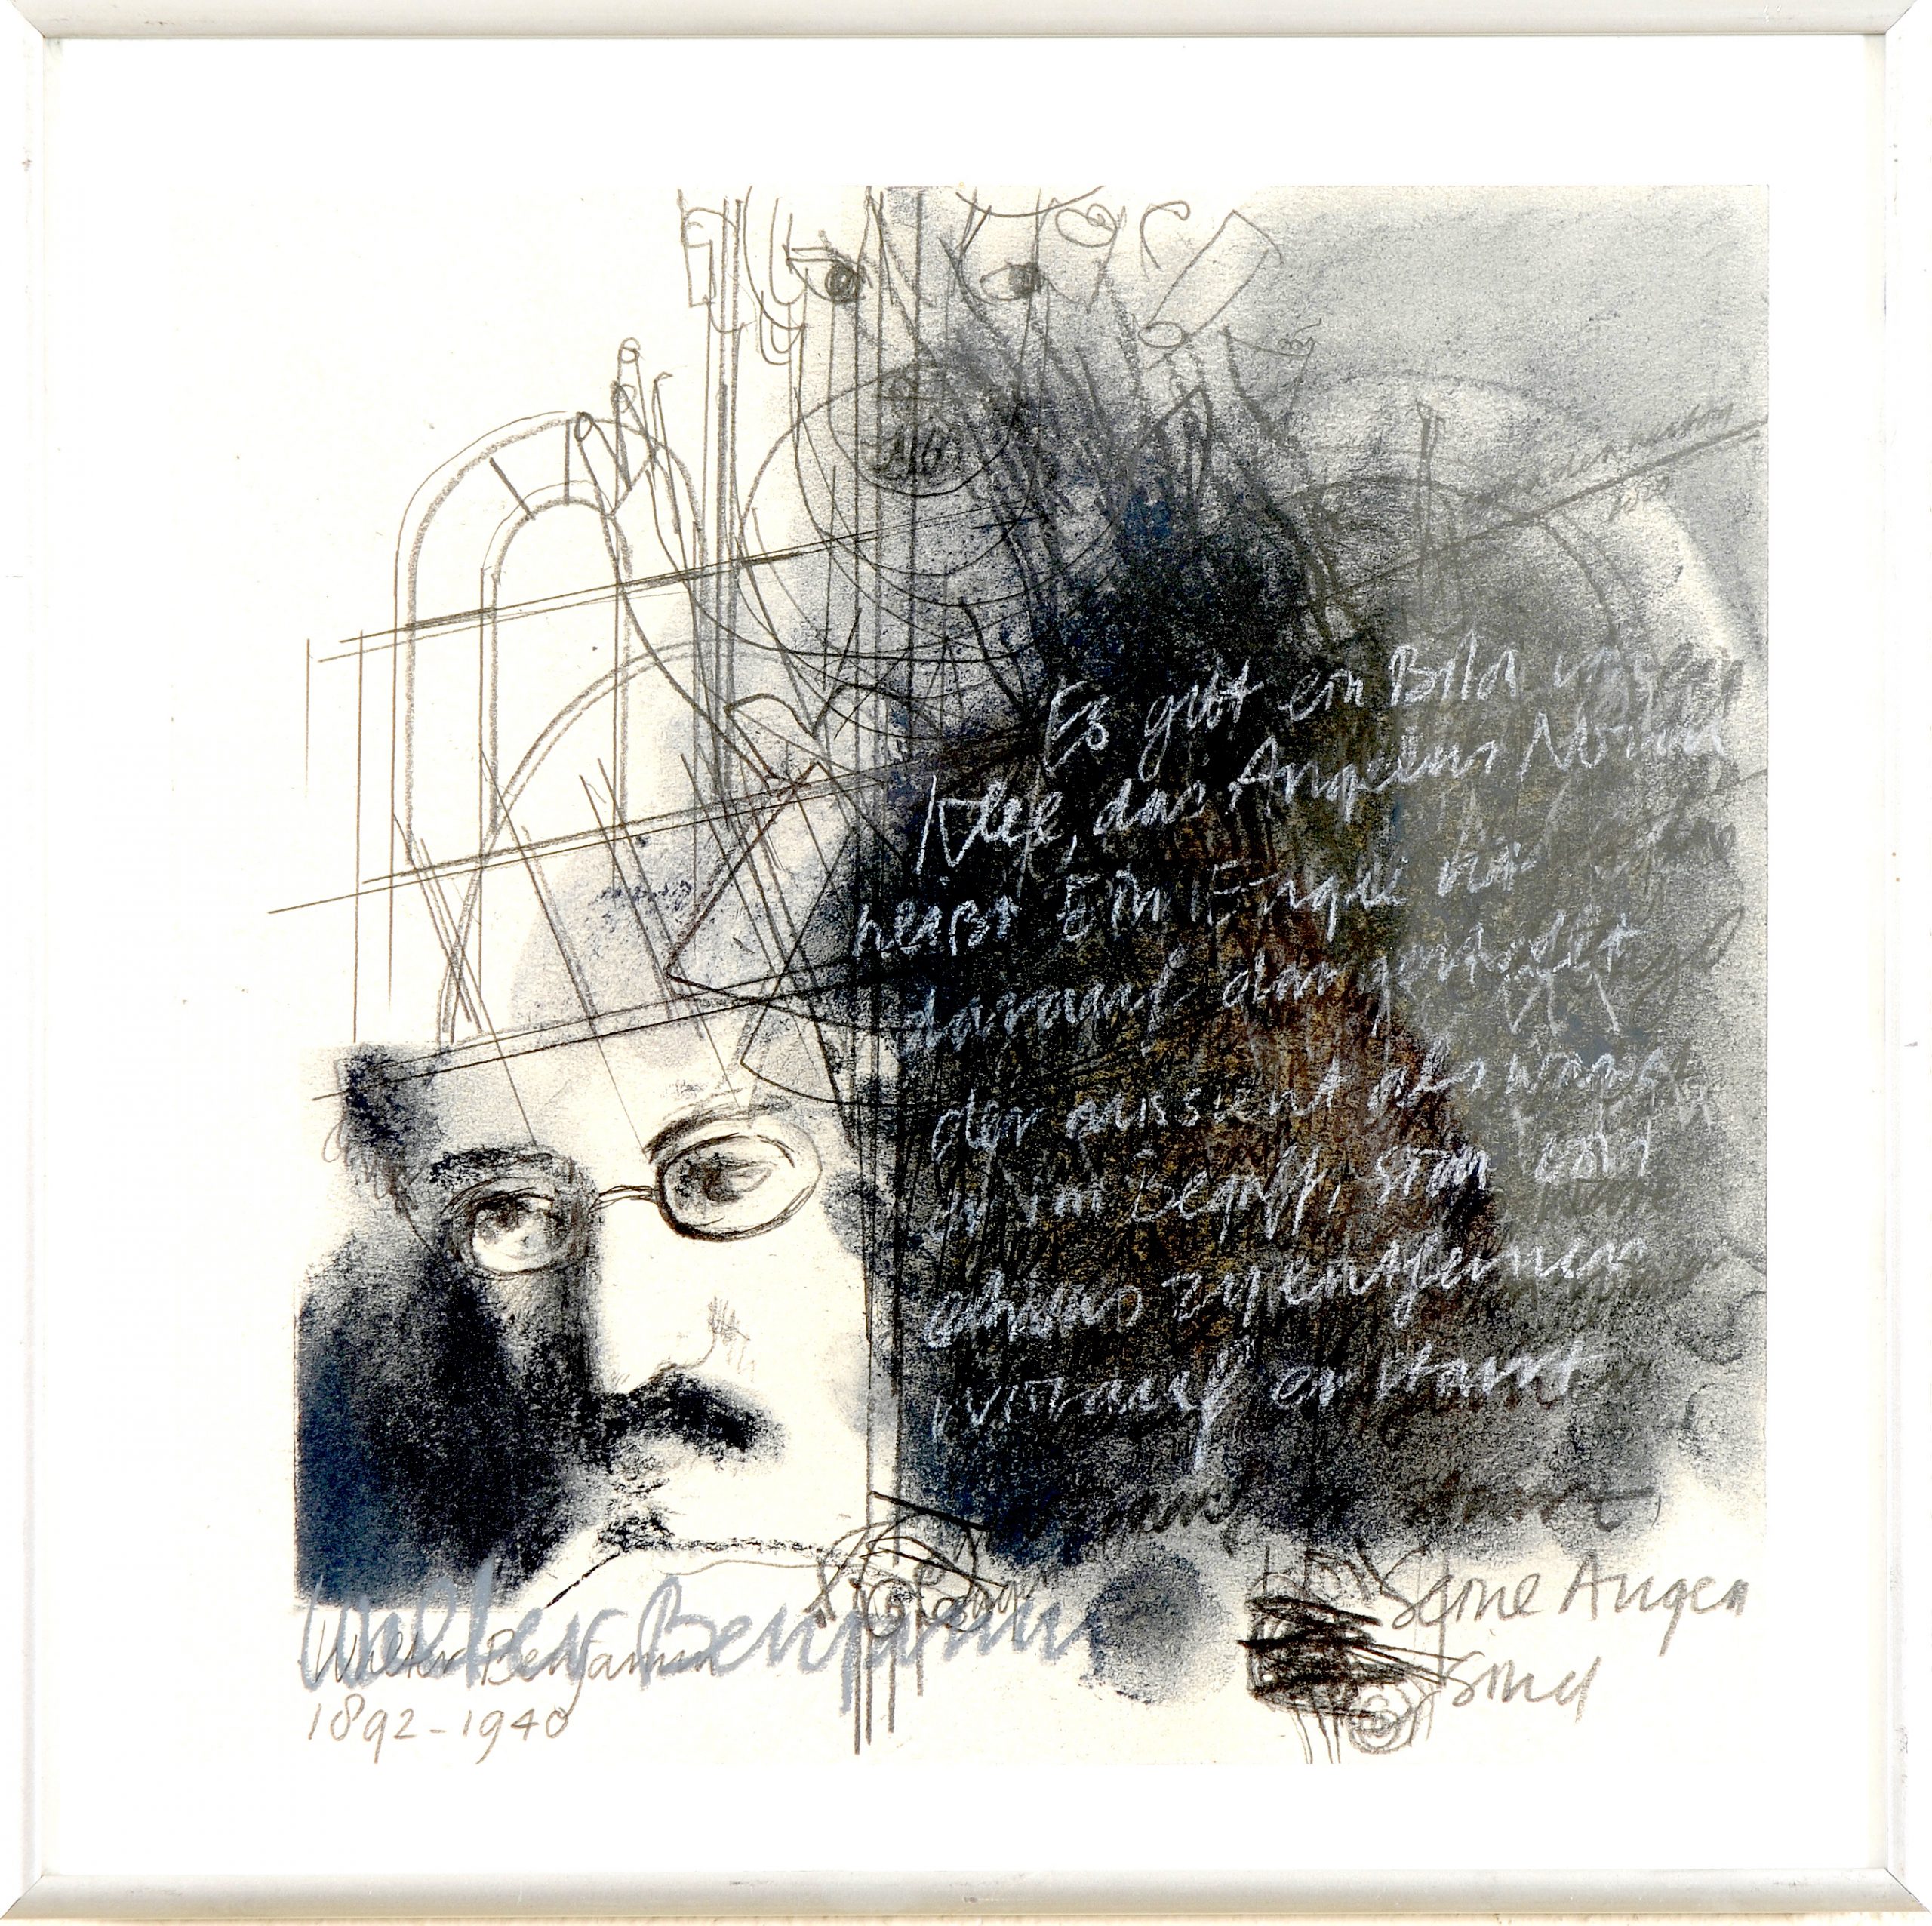 Es gibt ein Bild von
Klee, das Angelus Novus
heißt Ein Engel ist
darauf dargestellt
der aussieht als wäre
er im Begriff, sich von
etwas zu entfernen
worauf er starrt
Seine Augen
sind
Walter Benjamin
Walter Benjamin
1892-1940